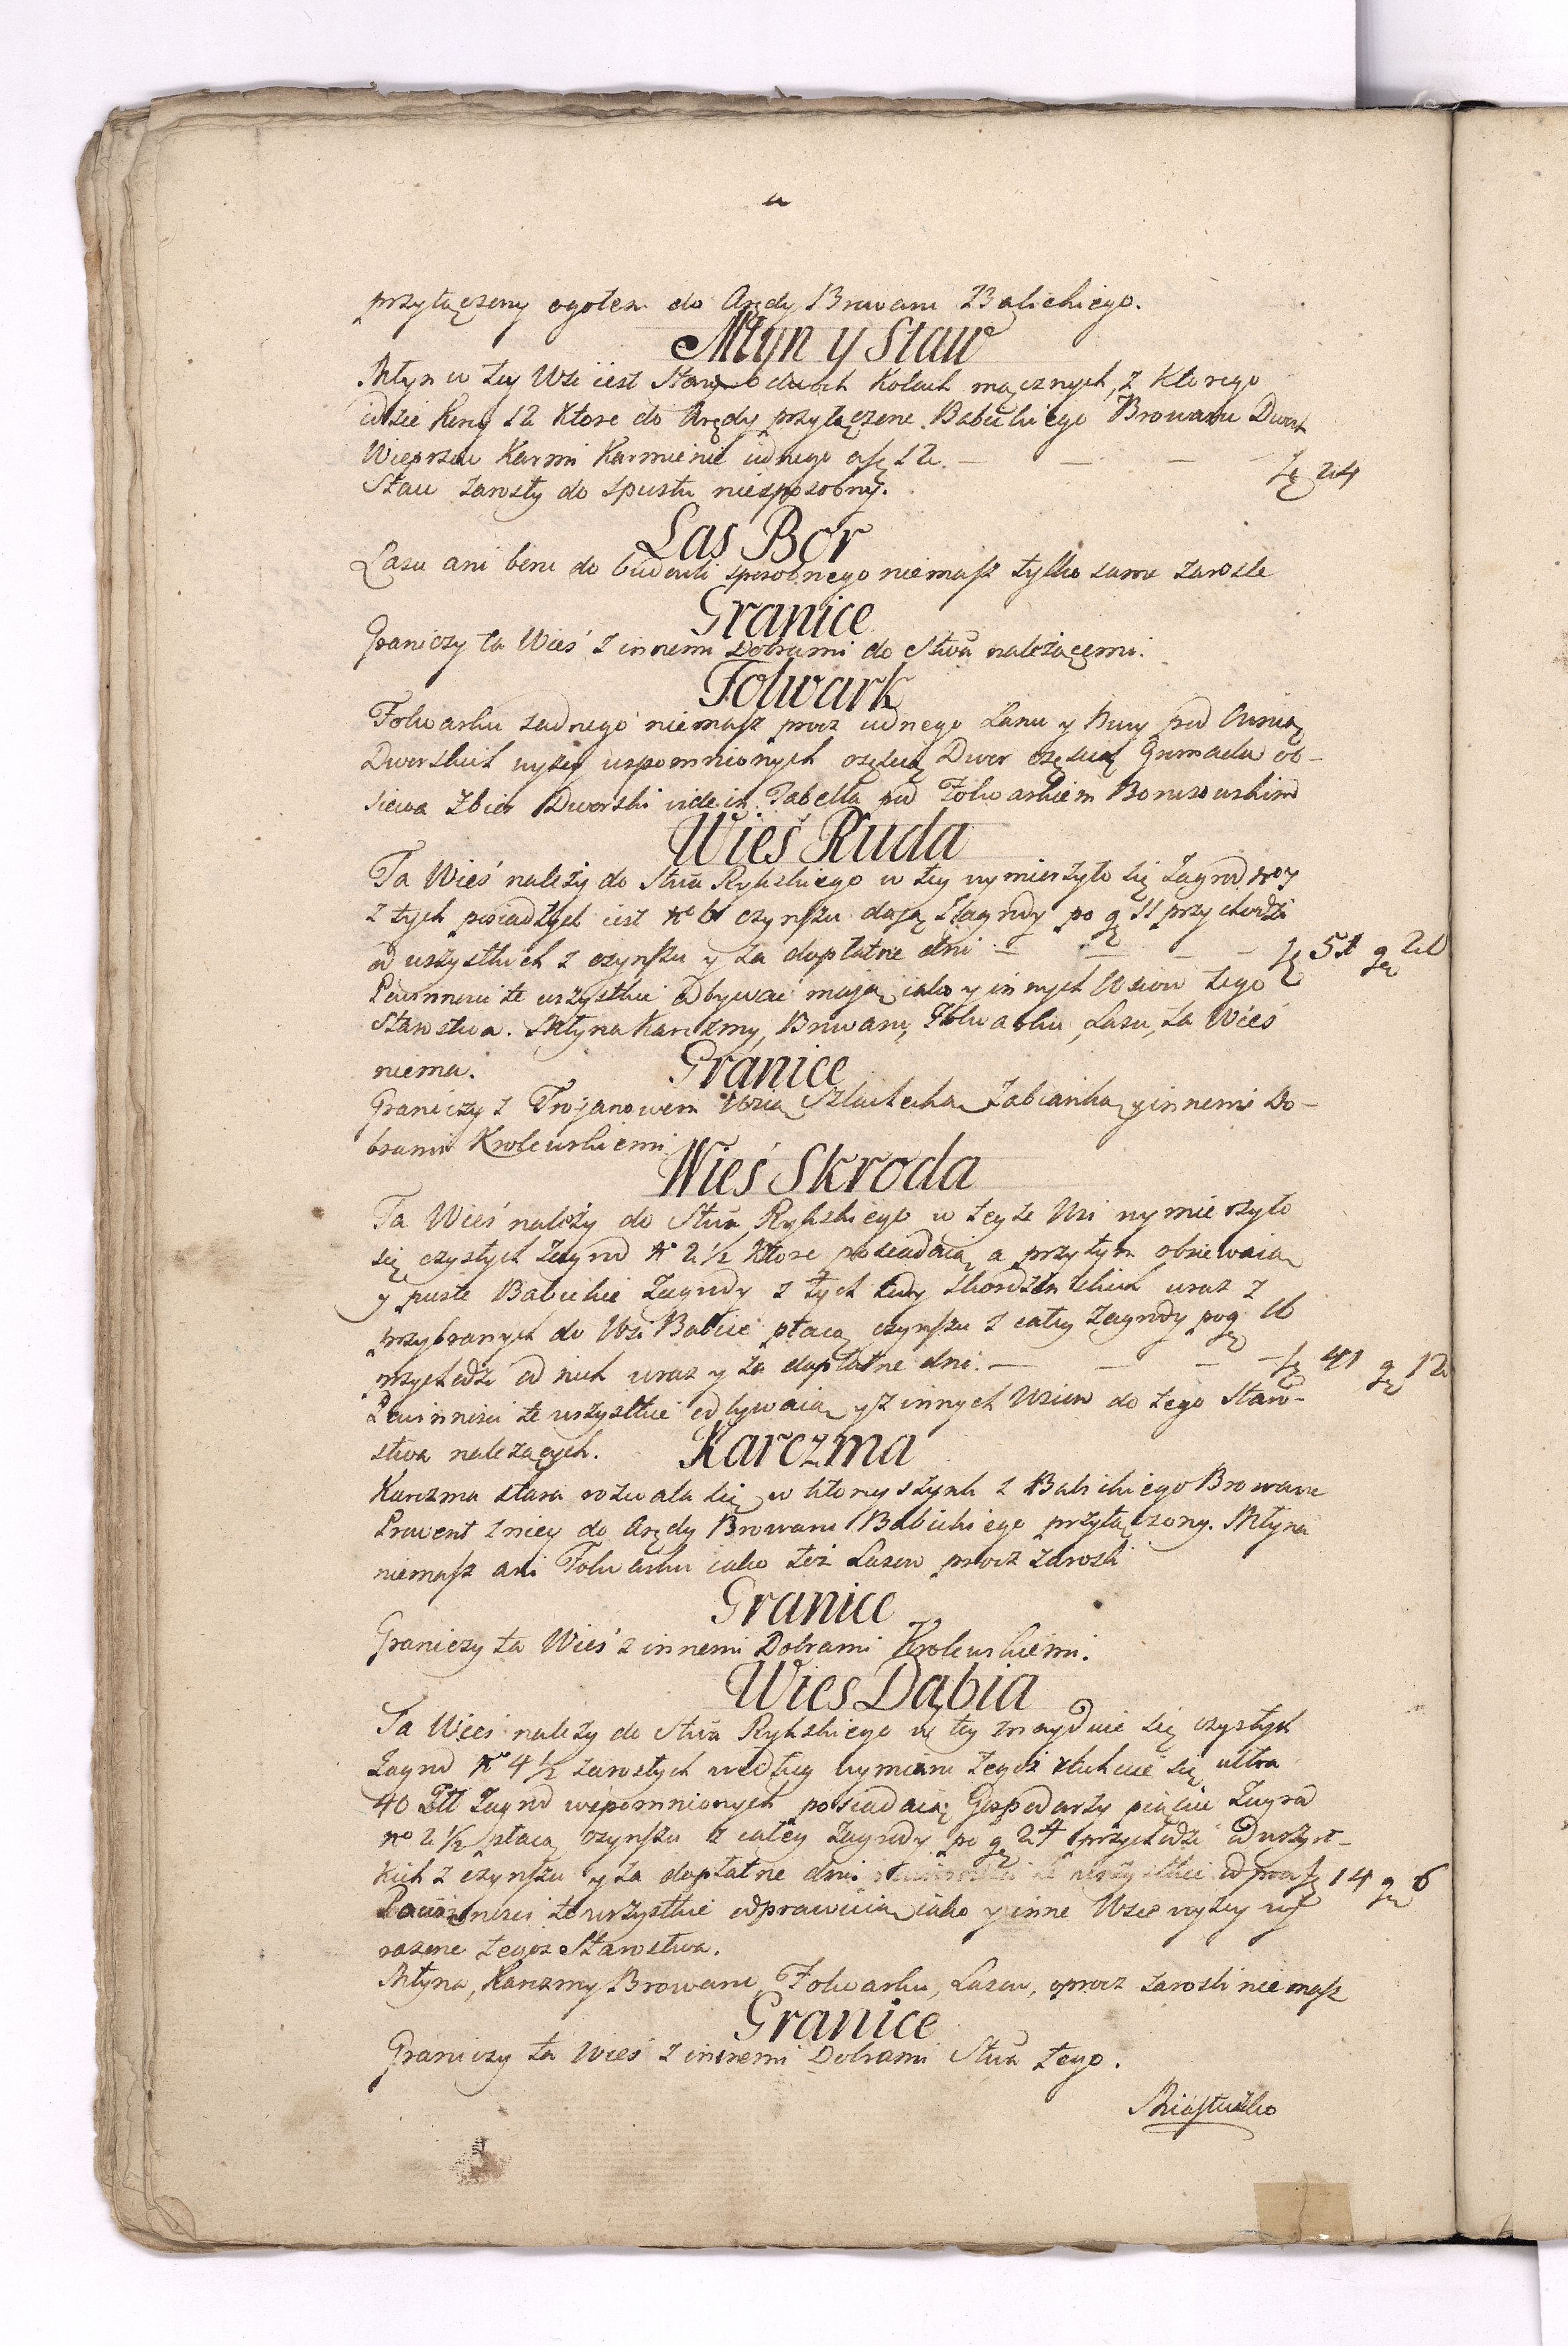 przyłączony ogołem do Arędy Browaru Babickiego.
Młyn y Staw
Młyn w tey Wsi iest Stary o dwoch Kołach mącznych, z Ktorego
idzie Korcy 12 Ktore do Arędy przyłączone Babickiego Browaru Dwor
Wieprze Karmi Karmienie iednego 12. — — — zł 24
Staw zarosły do spustu niesposobny.
Las Bor
Lasu ani boru do budowli sposobnego niemasz tylko same zarosle
Granice
Graniczy ta Wieś z innemi Dobrami do Stwa należącemi.
Folwark
Folwarku żadnego niemasz procz iednego Łanu y pod
Dworskich wyżey wspomnionych częścią Dwor częścią Gromada ob-
siewa Zbior Dworski vide in Tabella pod Folwarkiem
Wieś Ruda
Ta Wieś należy do Stwa Rykskiego w tey wymierzyło się Zagrod No 7
z tych posiadłych iest No 6 czynszu dają z Zagrody po gr 11 przychodzi
od wszystkich z czynszu y za dopłatne dni — — — — zł 51 gr 20
Powinnosci te wszystkie odbywać mają iako y innych Wsiow tego
Starostwa. Młyna Karczmy, Browaru, Folwarku, Lasu, ta Wieś
niema.
Granice
Graniczy z Trojanowem Wsią Szlachecką Zabianką y innemi Do-
brami Krolewskiemi.
Wieś Skroda
Ta Wieś należy do Stwa Rykskiego w teyże Wsi wymierzyło
się czystych Zagrod No 2 1/2 Ktore posiadaią a przytym obsiewaią
y puste Babickie Zagrody z tych tedy wraz z
przybranych do Wsi Babic płacą czynszu z całey Zagrody po gr 16
przychodzi od nich wraz y za dopłatne dni. — — — — zł 41 gr 12
Powinnosci te wszystkie odbywaią y z innych Wsiow do tego Staro-
stwa należących.
Karczma
Karczma stara rozwala się w ktorey szynk z Babickiego Browaru
Prowent z niey do Arędy Browaru Babickiego przyłączony. Młyna
niemasz ani Folwarku iako też Lasow procz zarosli
Granice
Graniczy ta Wieś z innemi Dobrami Krolewskiemi.
Wies Dąbia
Ta Wieś należy do Stwa Rykskiego w tey znayduie się czystych
Zagrod No 4 1/2 zarosłych według wymiaru tegoż się ultra
40 Zagrod wspomnionych posiadaią Gospodarzy pięciu Zagrod
No 2 1/2 płacą czynszu z całey Zagrody po gr 24 przychodzi od wszyst-
kich z czynszu y za dopłatne dni zł 14 gr 6
Powinnosci te wszystkie odprawuią iako y inne Wsie wyżey wy
rażone tegoż Starostwa.
Młyna, Karczmy Browaru Folwarku, Lasow, oprocz zarosli niemasz
Granice
Graniczy ta wieś z innemi Dobrami Stwa tego.
Miasteczko